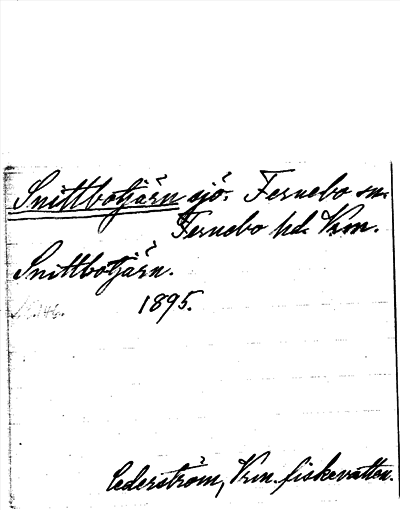 Snittbotjärn sjö. Fernebo sn.
Fernebo hd. Vrm.
Snittbotjärn.
1895.
Cederström, Vrm. fiskevatten.